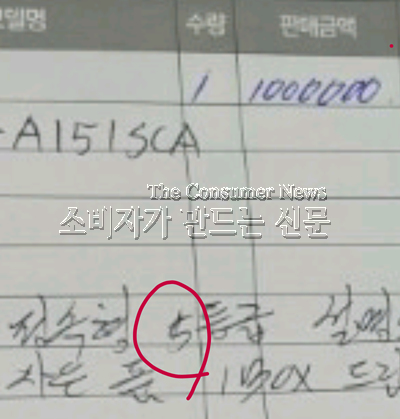 모델명 수량 판매금액
1 1000000
-A151SCA
The Consumer News
소비자가 만드는 신문
정속형 5등급 설명
사은품 1BOX 드림